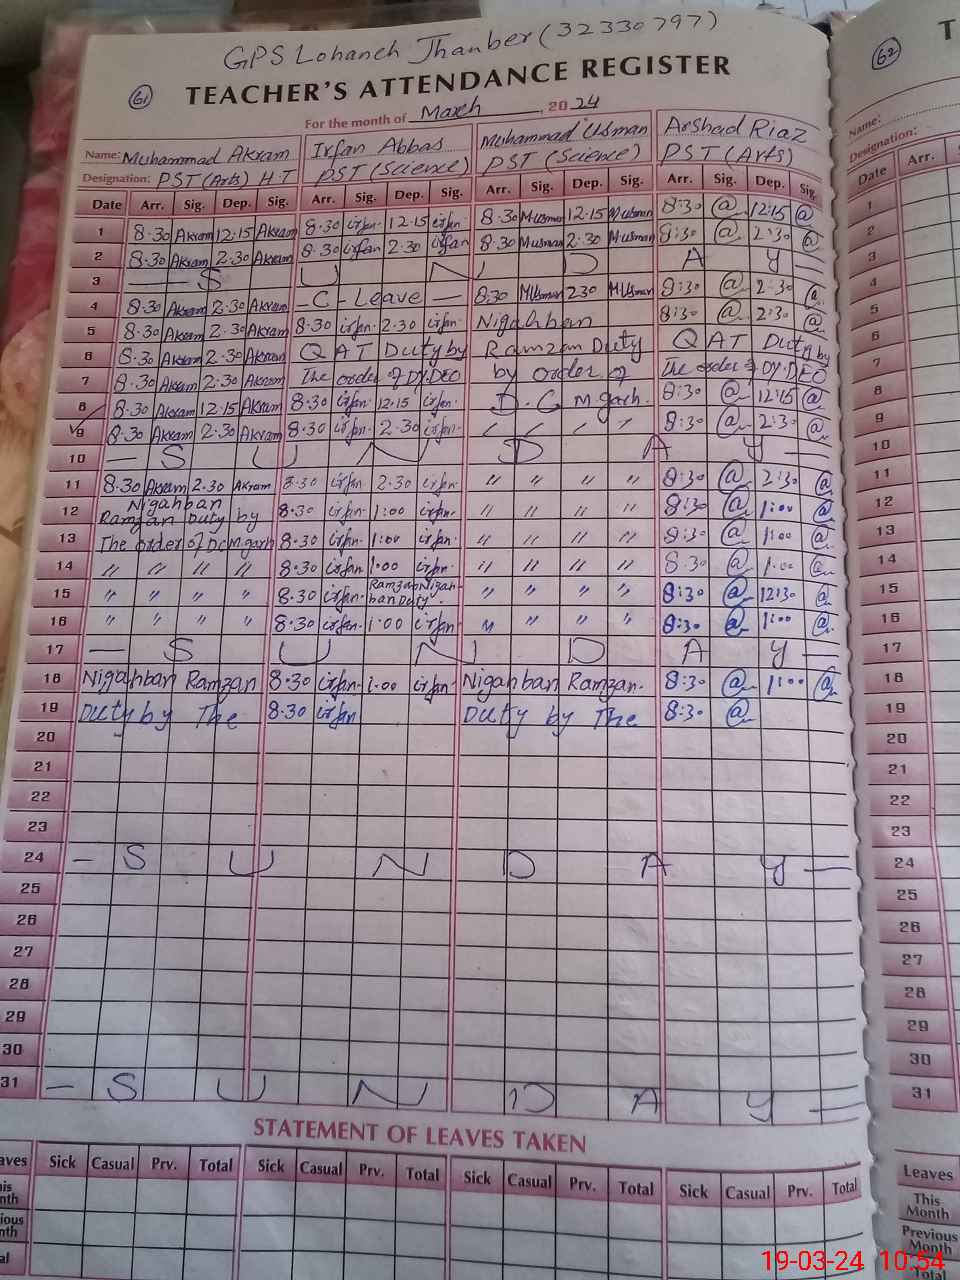 GPS Lohanch Jhanber (32330797)
61
TEACHER'S ATTENDANCE REGISTER
For the month of March, 2024
Name: Muhammad Akram Irfan Abbas Muhammad Usman Arshad Riaz
Designation: PST (Arts) H.T PST (Science) PST (Science) PST (Arts)
Date Arr. Sig. Dep. Sig. Arr. Sig. Dep. Sig. Arr. Sig. Dep. Sig. Arr. Sig. Dep. Sig.
1 8:30 Akram 12:15 Akram 8.30 irfan 12.15 irfan 8.30 Musman 12.15 Musman 8:30 @ 12:15 @
2 8.30 Akram 2.30 Akram 8.30 irfan 2.30 irfan 8.30 Musman 2.30 Musman 8:30 @ 2:30 @
3 — S U N D A Y —
4 8:30 Akram 2:30 Akram – C - Leave — 8:30 Musman 230 Musman 8:30 @ 2:30 @
5 8:30 Akram 2:30 Akram 8.30 irfan 2.30 irfan Nigahban 8:30 @ 2:30 @
6 8:30 Akram 2:30 Akram QAT Duty by Ramzan Duty QAT Duty by
7 8:30 Akram 2:30 Akram The order of DY.DEO by order of The order of DY.DEO
8 8:30 Akram 12:15 Akram 8:30 irfan 12.15 irfan D.C M.garh. 8:30 @ 12:15 @
9 8:30 Akram 2:30 Akram 8:30 irfan 2.30 irfan 〃 〃 〃 〃 8:30 @ 2:30 @
10 — S U N D A Y —
11 8:30 Akram 2:30 Akram 8.30 irfan 2.30 irfan 〃 〃 〃 〃 8:30 @ 2:30 @
12 Nigahban Ramzan Duty by 8.30 irfan 1:00 irfan 〃 〃 〃 〃 8:30 @ 1:00 @
13 The order of DC M.garh 8:30 irfan 1:00 irfan 〃 〃 〃 〃 8:30 @ 1:00 @
14 〃 〃 〃 〃 8:30 irfan 1:00 irfan 〃 〃 〃 〃 8:30 @ 1:00 @
15 〃 〃 〃 〃 8:30 irfan Ramzan Nigahban Duty 〃 〃 〃 〃 8:30 @ 12:30 @
16 〃 〃 〃 〃 8:30 irfan 1:00 irfan 〃 〃 〃 〃 8:30 @ 1:00 @
17 — S U N D A Y —
18 Nigahban Ramzan 8:30 irfan 1:00 irfan Nigahban Ramzan. 8:30 @ 1:00 @
19 Duty by The 8:30 irfan Duty by The 8:30 @
20
21
22
23
24 — S U N D A Y —
25
26
27
28
29
30
31 — S U N D A Y —
STATEMENT OF LEAVES TAKEN
aves Sick Casual Prv. Total Sick Casual Prv. Total Sick Casual Prv. Total Sick Casual Prv. Total
his
nth
ious
nth
al
62
T
Name:
Designation:
Date Arr. S
1
2
3
4
5
6
7
8
9
10
11
12
13
14
15
16
17
18
19
20
21
22
23
24
25
26
27
28
29
30
31
Leaves
This
Month
Previous
Month
Total
19-03-24 10:54